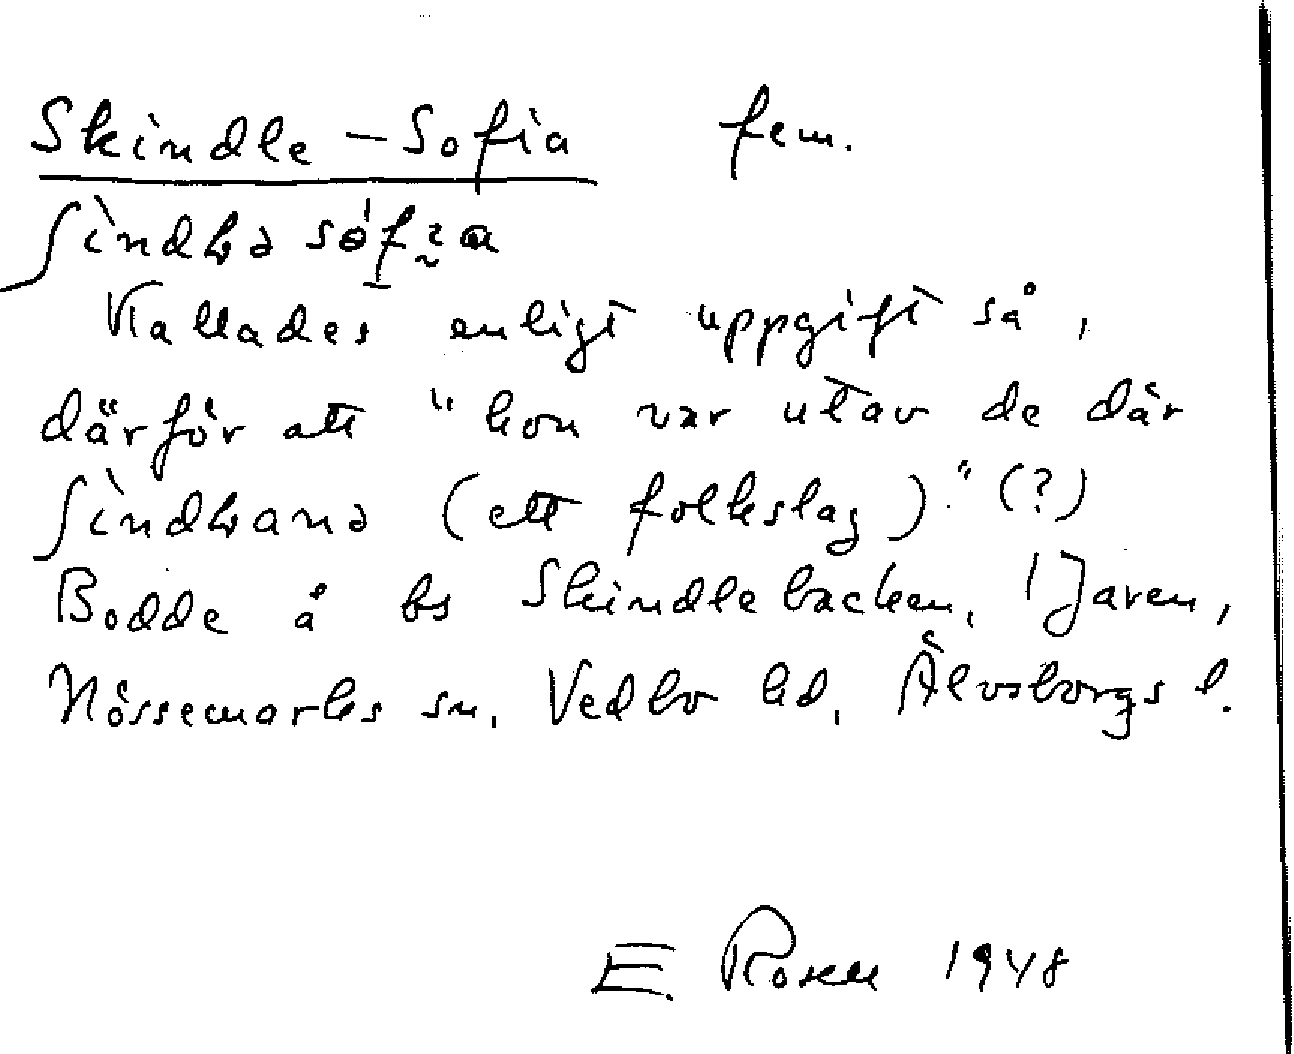 Skindle-Sofia fem.
ʃìndɫə sófi̯a
Kallades enligt uppgift så,
därför att "hon var utav de där
ʃìndɫana (ett folkslag)." (?)
Bodde å bs Skindlebacken, 1 Jaren,
Nössemarks sn, Vedbo hd, Älvsborgs l.
E. Rosell 1948